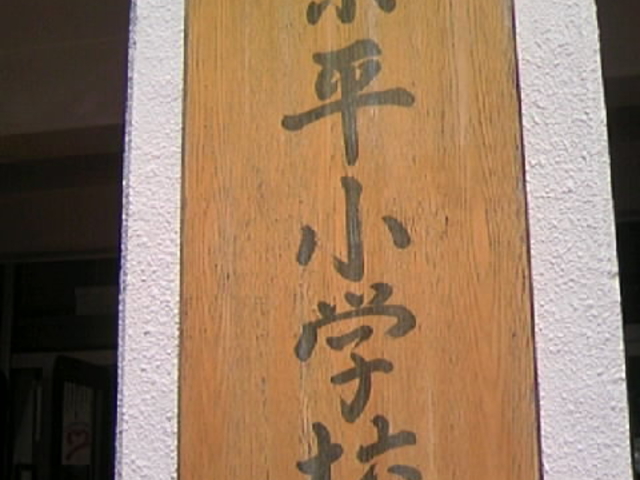 平小学校